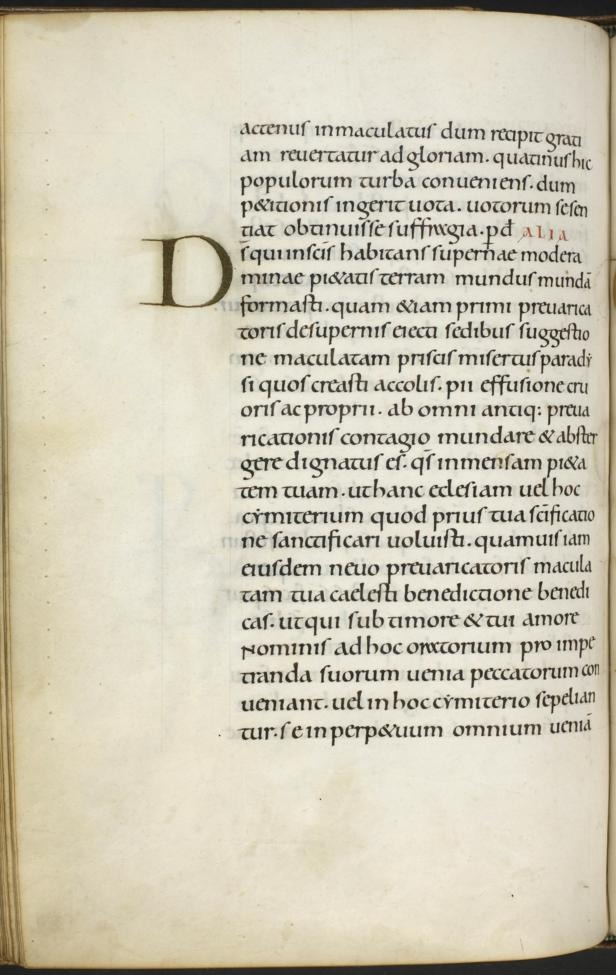 actenus inmaculatus dum recipit grati
am reuertatur ad gloriam. quatinus hic
populorum turba conueniens. dum
p&itionis ingerit uota. uotorum se sen
tiat obtinuisse suffragia. pđ ALIA
D s̄ qui inscīs habitans supernae modera
minae pi&atis terram mundus mundā
formasti. quam &iam primi preuarica
toris desupernis eiecti sedibus suggestio
ne maculatam priscis misertus parady
si quos creasti accolis. pii effusione cru
oris ac proprii. ab omni antiq: preua
ricationis contagio mundare & abster
gere dignatus es. qs̄ inmensam pi&a
tem tuam. ut hanc eclesiam uel hoc
cẏmiterium quod prius tua scīficatio
ne sanctificari uoluisti. quamuis iam
eiusdem neuo preuaricatoris macula
tam tua caelesti benedictione benedi
cas. ut qui sub timore & tui amore
Nominis ad hoc oratorium pro impe
tranda suorum uenia peccatorum con
ueniant. uel in hoc cẏmiterio sepelian
tur. se in perp&uum omnium ueniā